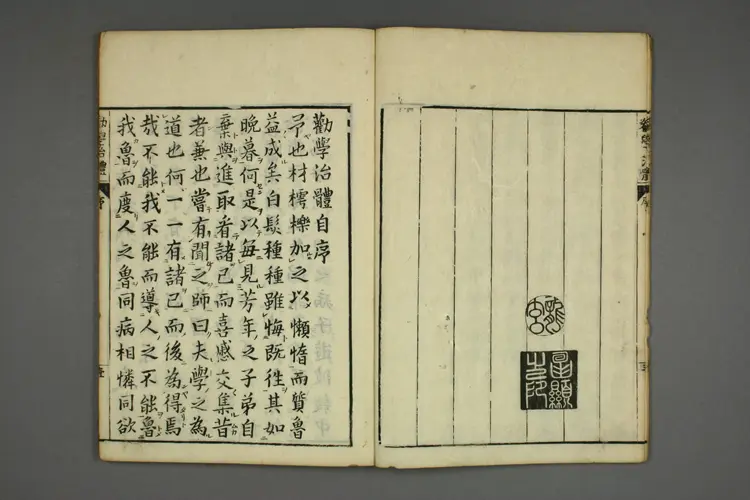 勸學治體
勸學治體自序
予也材樗櫟加之以懶惰而質魯
益成矣白鬚種種雖悔既徃其如
晚暮何是以每見芳年之子弟自
棄與進取看諸已而喜慼交集昔
者兼也嘗有聞之師曰夫學之為
道也何一一有諸已而後為得焉
哉不能我不能而導人之不能魯
我魯而度人之魯同病相憐同欲
勸學治體
序